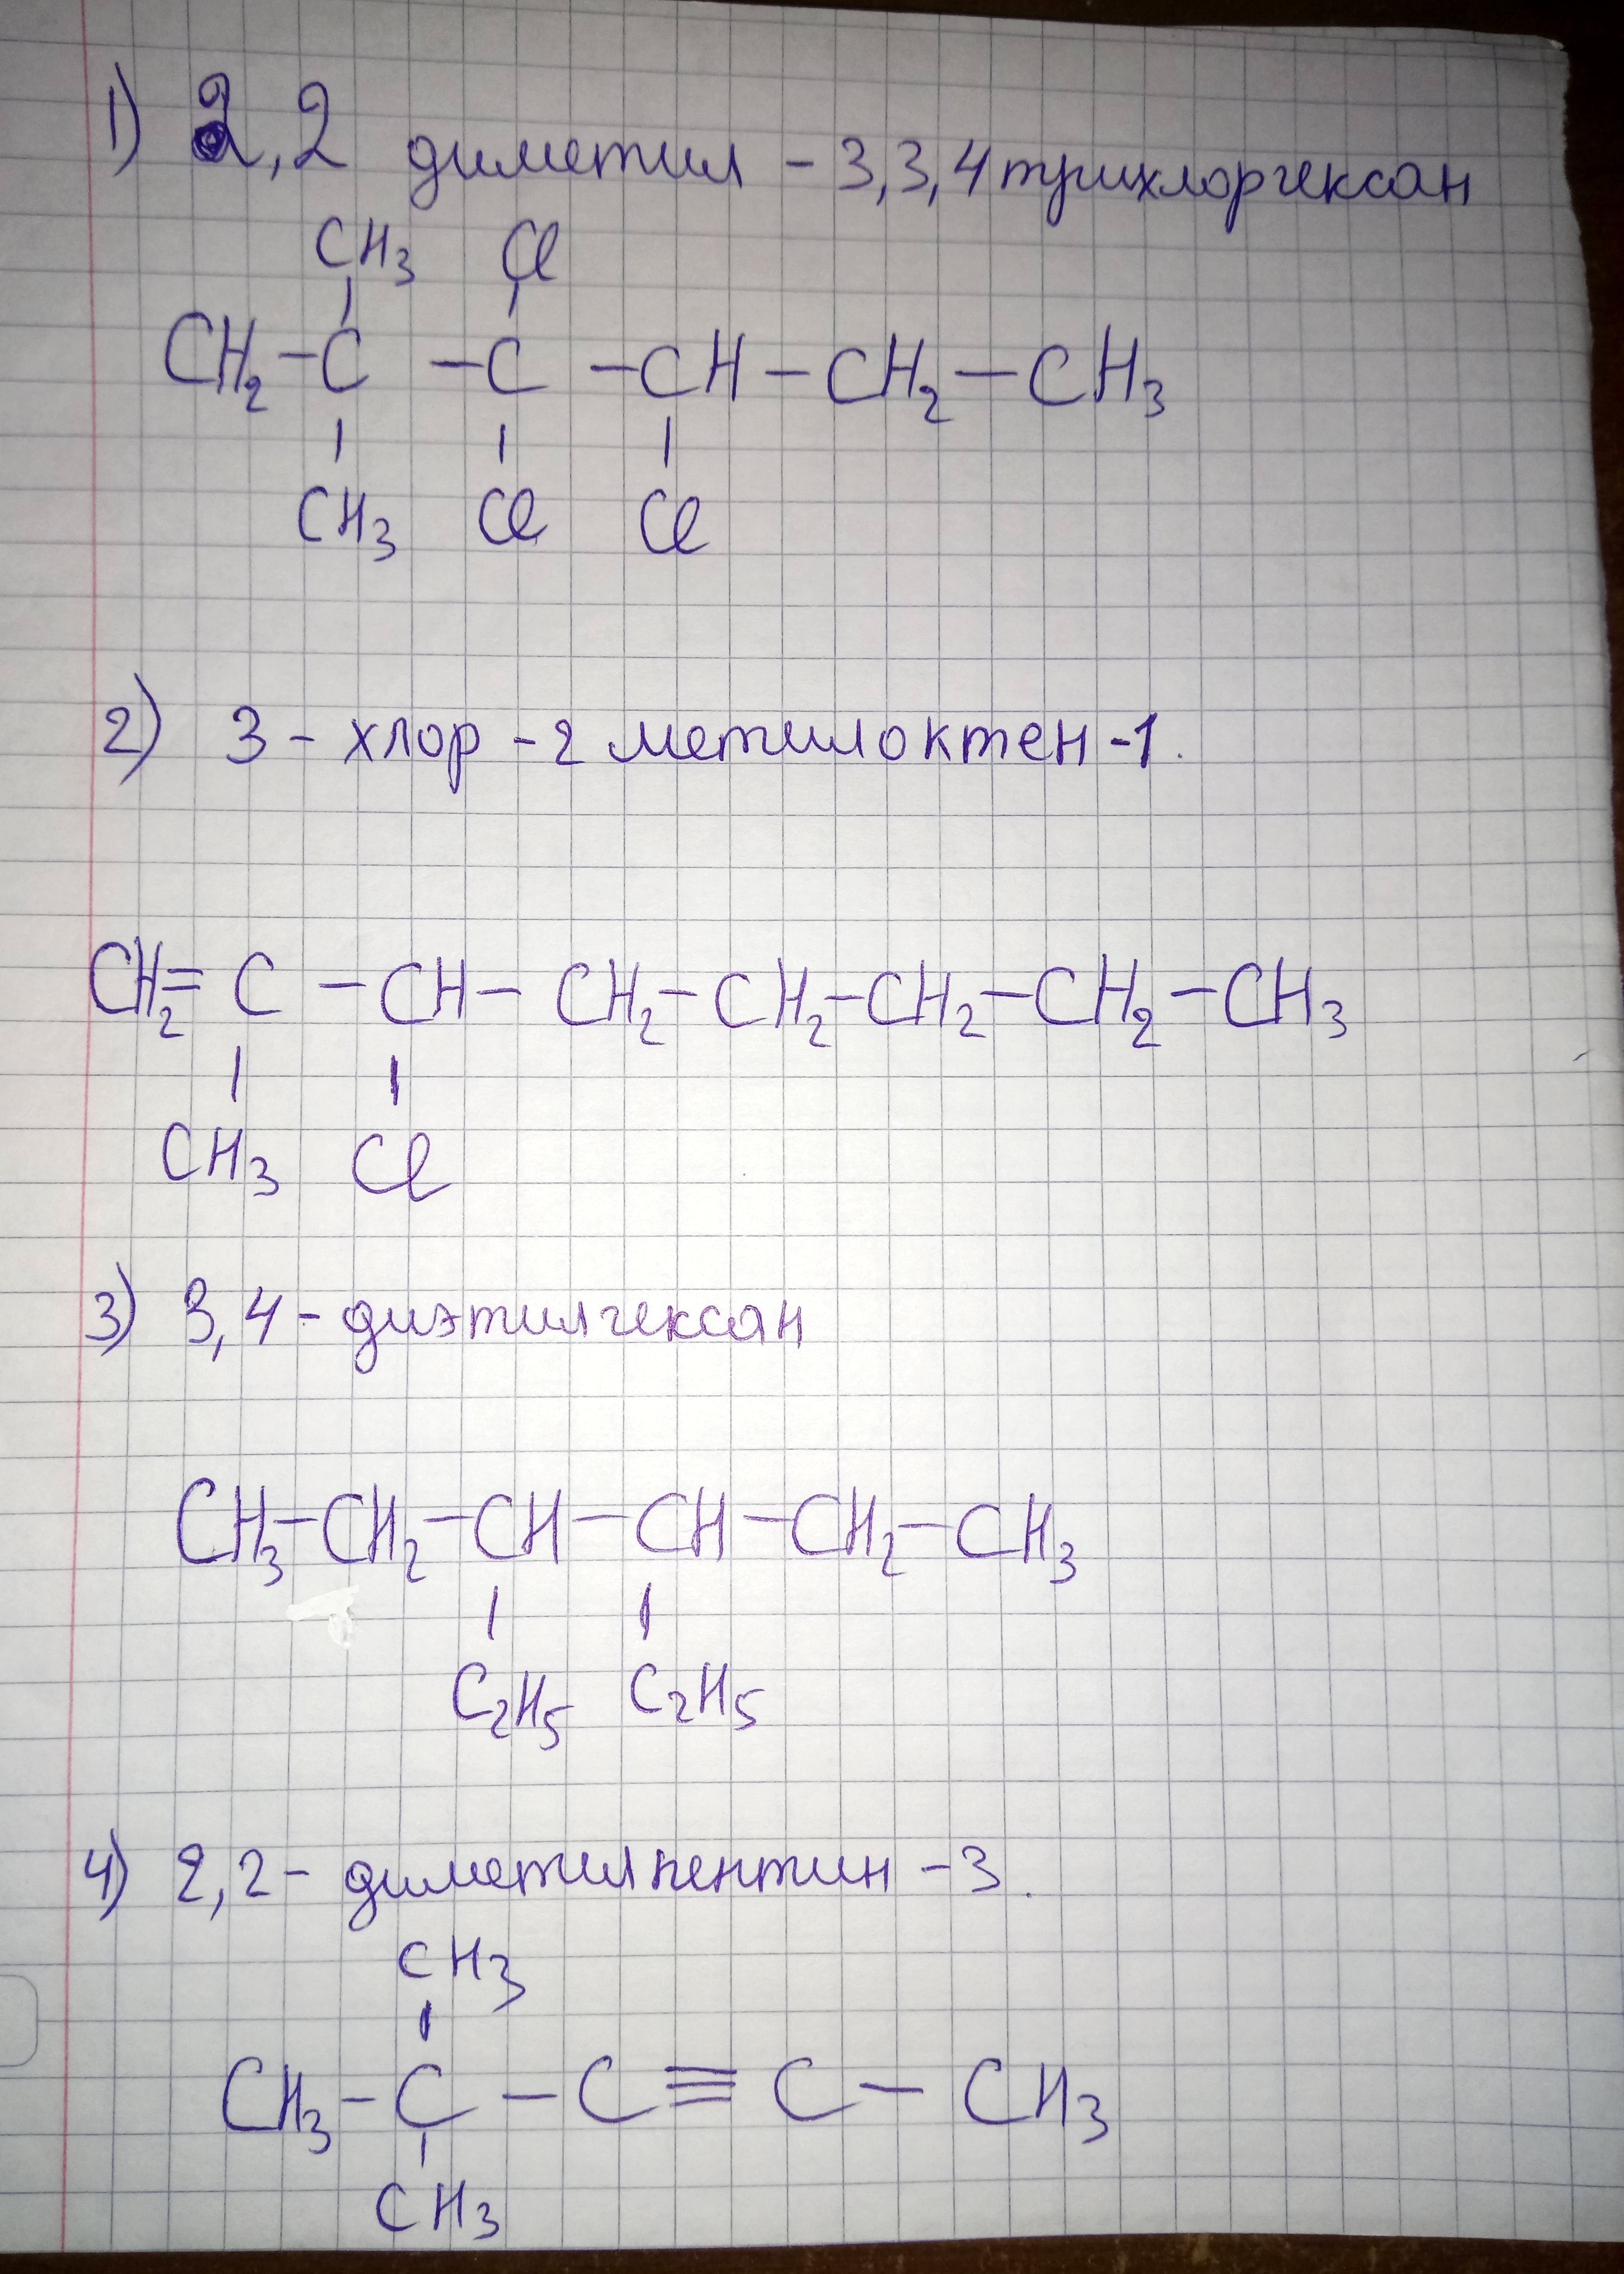 1) 2,2 диметил - 3,3,4 трихлоргексан
CH3 Cl
CH2 - C - C - CH - CH2 - CH3
CH3 Cl Cl
2) 3 - хлор - 2 метилоктен - 1.
CH2 = C - CH - CH2 - CH2 - CH2 - CH2 - CH3
CH3 Cl
3) 3,4 - диэтилгексан
CH3 - CH2 - CH - CH - CH2 - CH3
C2H5 C2H5
4) 2,2 - диметилпентин - 3.
CH3
CH3 - C - C ≡ C - CH3
CH3